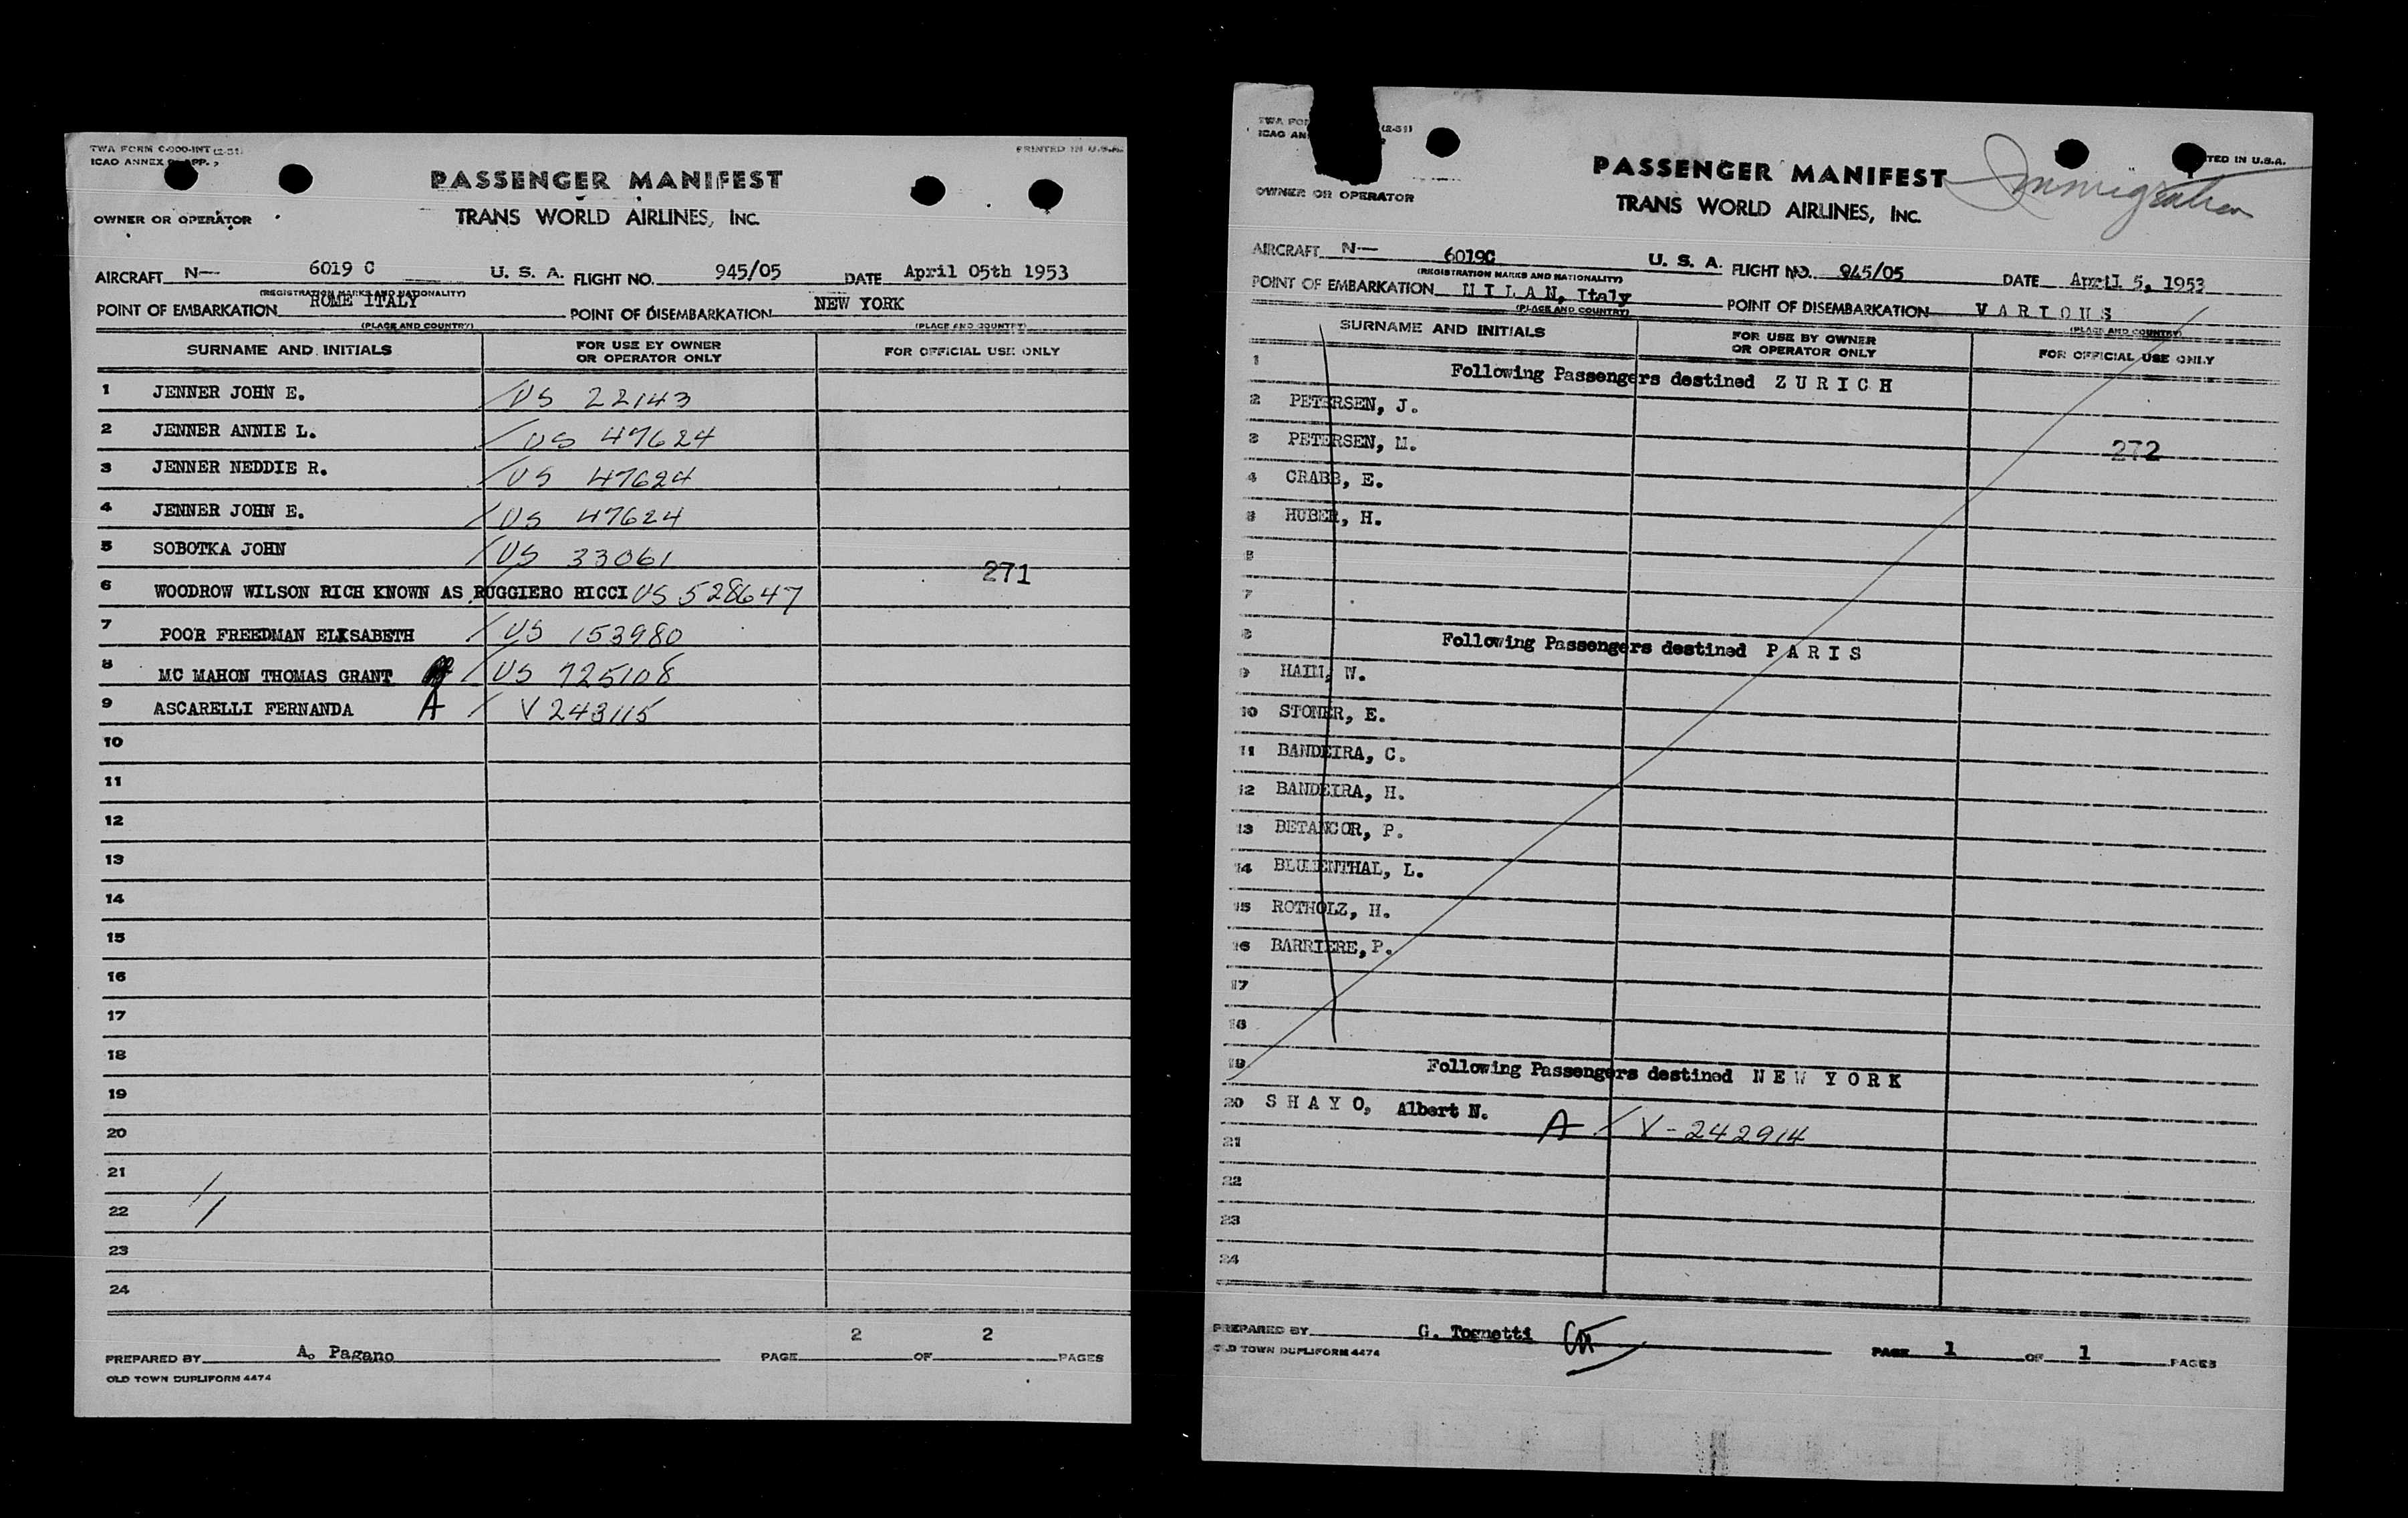 TWA FORM C-900-INT (2-51)
ICAO ANNEX 9, APP.
PRINTED IN U.S.A.
PASSENGER MANIFEST
OWNER OR OPERATOR
TRANS WORLD AIRLINES, INC.
AIRCRAFT N— 6019 C U. S. A. FLIGHT NO. 945/05 DATE April 05th 1953
(REGISTRATION MARKS AND NATIONALITY)
POINT OF EMBARKATION ROME ITALY POINT OF DISEMBARKATION NEW YORK
(PLACE AND COUNTRY) (PLACE AND COUNTRY)
SURNAME AND INITIALS FOR USE BY OWNER OR OPERATOR ONLY FOR OFFICIAL USE ONLY
1 JENNER JOHN E. / US 22143
2 JENNER ANNIE L. / US 47624
3 JENNER NEDDIE R. / US 47624
4 JENNER JOHN E. / US 47624
5 SOBOTKA JOHN / US 33061
271
6 WOODROW WILSON RICH KNOWN AS RUGGIERO RICCI US 528647
7 POOR FREEDMAN ELISABETH / US 153980
8 MC MAHON THOMAS GRANT / US 725108
9 ASCARELLI FERNANDA A / V 243115
10
11
12
13
14
15
16
17
18
19
20
21
22
23
24
PREPARED BY A. Pagano PAGE 2 OF 2 PAGES
OLD TOWN DUPLIFORM 4474
TWA (2-51)
ICAO
TED IN U.S.A.
PASSENGER MANIFEST Immigration
OWNER OR OPERATOR
TRANS WORLD AIRLINES, INC.
AIRCRAFT N— 6019C U. S. A. FLIGHT NO. 945/05 DATE April 5, 1953
(REGISTRATION MARKS AND NATIONALITY)
POINT OF EMBARKATION M I L A N, Italy POINT OF DISEMBARKATION V A R I O U S
(PLACE AND COUNTRY) (PLACE AND COUNTRY)
SURNAME AND INITIALS FOR USE BY OWNER OR OPERATOR ONLY FOR OFFICIAL USE ONLY
1 Following Passengers destined Z U R I C H
2 PETERSEN, J.
3 PETERSEN, M. 272
4 CRABB, E.
5 HUBER, H.
6
7
8 Following Passengers destined P A R I S
9 HAIM, W.
10 STONER, E.
11 BANDEIRA, C.
12 BANDEIRA, H.
13 BETANCOR, P.
14 BLUMENTHAL, L.
15 ROTHOLZ, H.
16 BARRIERE, P.
17
18
19 Following Passengers destined N E W Y O R K
20 S H A Y O, Albert N. A / V-242914
21
22
23
24
PREPARED BY G. Tognetti PAGE 1 OF 1 PAGES
OLD TOWN DUPLIFORM 4474